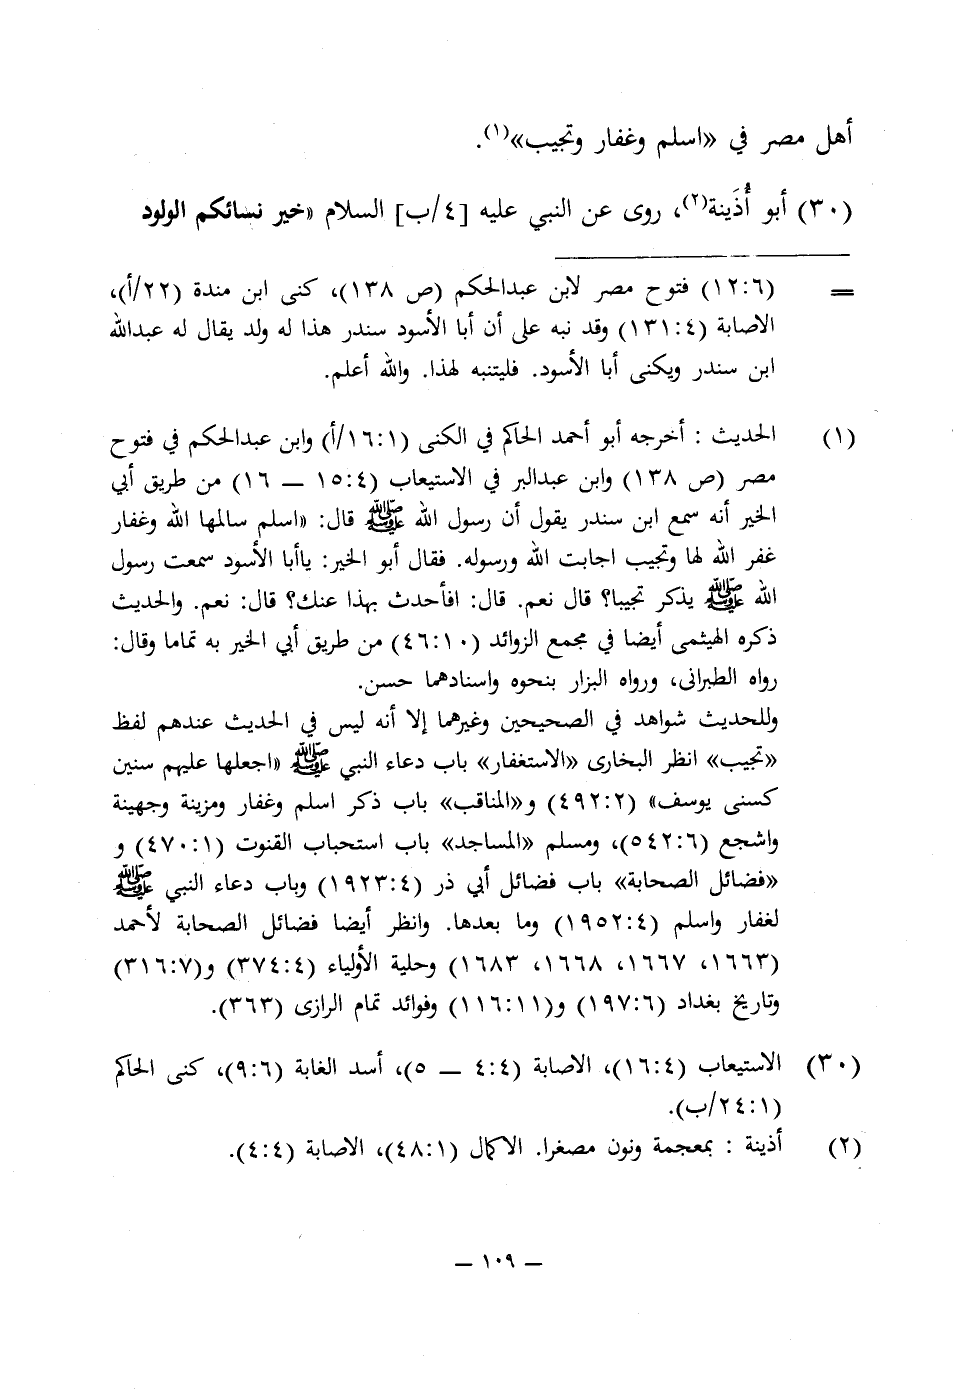 أهل مصر في «اسلم وغفار وتجيب»(١).
(٣٠) أبو أُذَينة(٢)، روى عن النبي عليه [٤/ب] السلام «خير نسائكم الولود
= (١٢:٦) فتوح مصر لابن عبدالحكم (ص ١٣٨)، كنى ابن مندة (٢٢/أ)،
الاصابة (١٣١:٤) وقد نبه على أن أبا الأسود سندر هذا له ولد يقال له عبدالله
ابن سندر ويكنى أبا الأسود. فليتنبه لهذا. والله أعلم.
(١) الحديث : أخرجه أبو أحمد الحاكم في الكنى (١٦:١/أ) وابن عبدالحكم في فتوح
مصر (ص ١٣٨) وابن عبدالبر في الاستيعاب (١٥:٤ — ١٦) من طريق أبي
الخير أنه سمع ابن سندر يقول أن رسول الله ﷺ قال: «اسلم سالمها الله وغفار
غفر الله لها وتجيب اجابت الله ورسوله. فقال أبو الخير: ياأبا الأسود سمعت رسول
الله ﷺ يذكر تجيبا؟ قال نعم. قال: افأحدث بهذا عنك؟ قال: نعم. والحديث
ذكره الهيثمى أيضا في مجمع الزوائد (٤٦:١٠) من طريق أبي الخير به تماما وقال:
رواه الطبرانى، ورواه البزار بنحوه واسنادهما حسن.
وللحديث شواهد في الصحيحين وغيرهما إلا أنه ليس في الحديث عندهم لفظ
«تجيب» انظر البخارى «الاستغفار» باب دعاء النبي ﷺ «اجعلها عليهم سنين
كسنى يوسف» (٤٩٢:٢) و«المناقب» باب ذكر اسلم وغفار ومزينة وجهينة
واشجع (٥٤٢:٦)، ومسلم «المساجد» باب استحباب القنوت (٤٧٠:١) و
«فضائل الصحابة» باب فضائل أبي ذر (١٩٢٣:٤) وباب دعاء النبي ﷺ
لغفار واسلم (١٩٥٢:٤) وما بعدها. وانظر أيضا فضائل الصحابة لأحمد
(١٦٦٣، ١٦٦٧، ١٦٦٨، ١٦٨٣) وحلية الأولياء (٣٧٤:٤) و(٣١٦:٧)
وتاريخ بغداد (١٩٧:٦) و(١١٦:١١) وفوائد تمام الرازى (٣٦٣).
(٣٠) الاستيعاب (١٦:٤)، الاصابة (٤:٤ — ٥)، أسد الغابة (٩:٦)، كنى الحاكم
(٢٤:١/ب).
(٢) أذينة : بمعجمة ونون مصغرا. الاكمال (٤٨:١)، الاصابة (٤:٤).
— ١٠٩ —